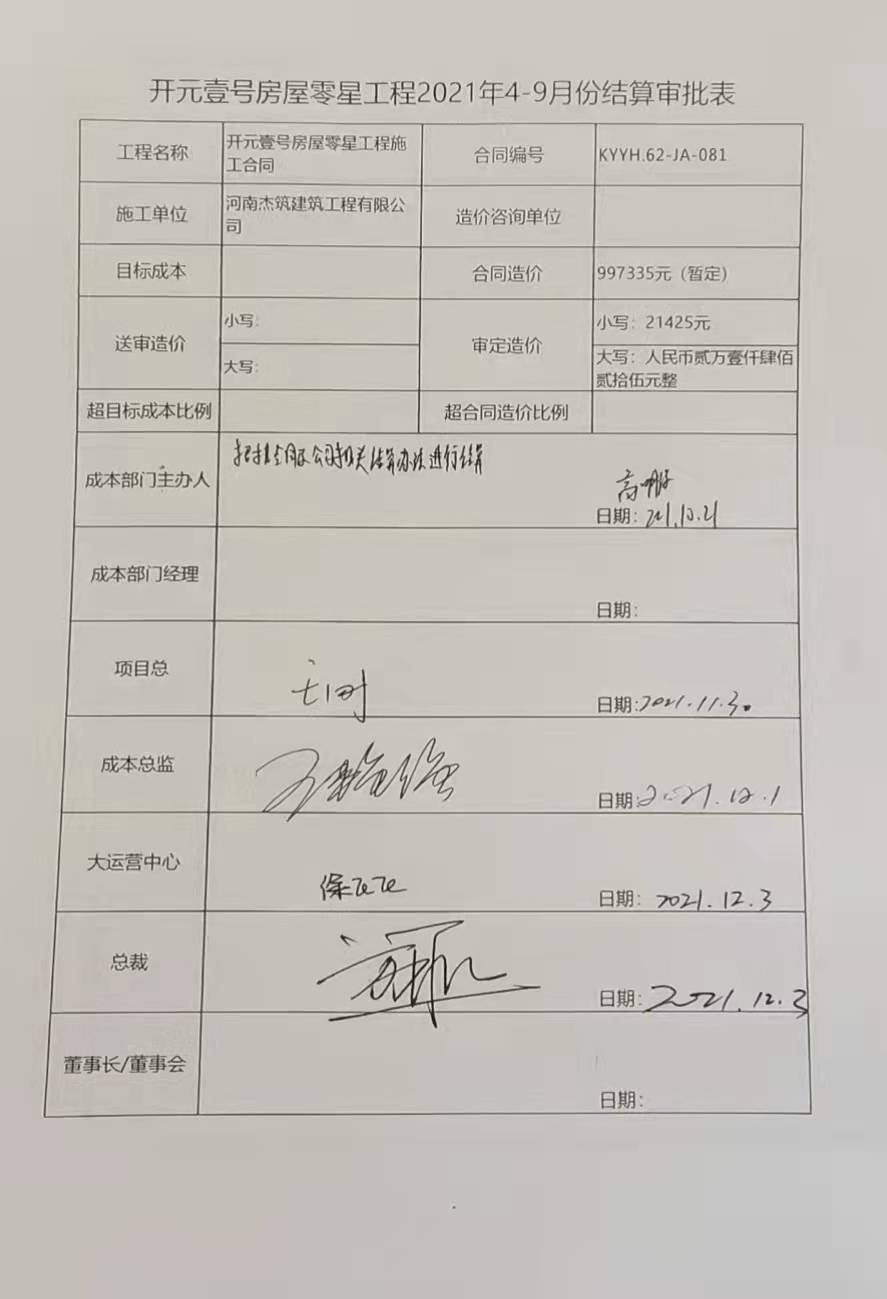 开元壹号房屋零星工程2021年4-9月份结算审批表
工程名称
开元壹号房屋零星工程施
工合同
合同编号
KYYH.62-JA-081
施工单位
河南杰筑建筑工程有限公
司
造价咨询单位
目标成本
合同造价
997335元（暂定）
送审造价
小写：
大写：
审定造价
小写：21425元
大写：人民币贰万壹仟肆佰
贰拾伍元整
超目标成本比例
超合同造价比例
成本部门主办人
公司相关结算办法进行结算
日期：2021.10.21
成本部门经理
日期：
项目总
日期：2021.11.30
成本总监
日期：2021.12.1
大运营中心
日期：2021.12.3
总裁
日期：2021.12.3
董事长/董事会
日期：